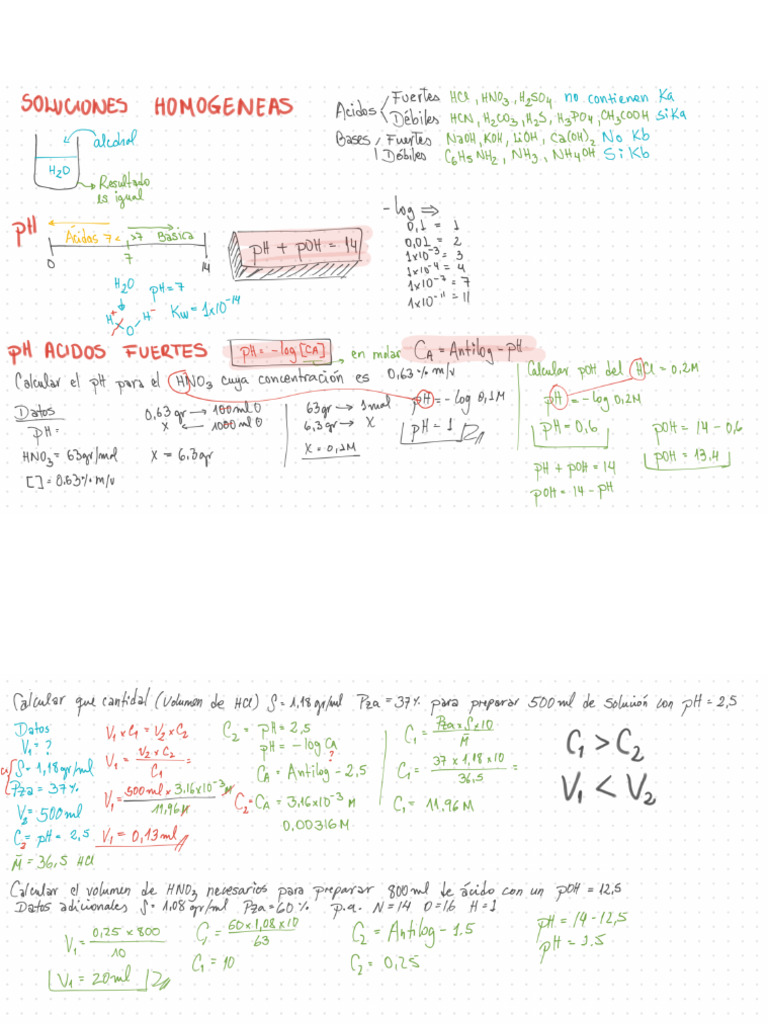 SOLUCIONES HOMOGENEAS
alcohol
H₂O
Resultado
es igual
Acidos
Fuertes HCl, HNO₃, H₂SO₄ no contienen Ka
Débiles HCN, H₂CO₃, H₂S, H₃PO₄, CH₃COOH si Ka
Bases
Fuertes NaOH, KOH, LiOH, Ca(OH)₂ No Kb
Débiles C₆H₅NH₂, NH₃, NH₄OH Si Kb
pH
Ácidos 7< >7 Básica
0 7 14
H₂O pH=7
H⁺ O H⁻ Kw = 1x10⁻¹⁴
pH + pOH = 14
-log ⇒
0,1 = 1
0,01 = 2
1x10⁻³ = 3
1x10⁻⁴ = 4
1x10⁻⁷ = 7
1x10⁻¹¹ = 11
pH ACIDOS FUERTES
pH = -log [CA] → en molar
CA = Antilog - pH
Calcular el pH para el HNO₃ cuya concentración es 0,63% m/v
Datos
pH =
HNO₃ = 63gr/mol
[ ] = 0.63% m/v
0,63gr → 100ml
x ← 1000ml
x = 6,3gr
63gr → 1mol
6,3gr → X
X = 0,1M
pH = -log 0,1M
pH = 1
Calcular pOH del HCl = 0,2M
pH = -log 0,2M
pH = 0,6
pH + pOH = 14
pOH = 14 - pH
pOH = 14 - 0,6
pOH = 13,4
Calcular que cantidad (Volumen de HCl) ρ = 1,18gr/ml Pza = 37% para preparar 500ml de solución con pH = 2,5
Datos
V₁ = ?
C₁ ρ = 1,18gr/ml
Pza = 37%
V₂ = 500ml
C₂ = pH = 2,5
M̄ = 36,5 HCl
V₁ x C₁ = V₂ x C₂
V₁ = V₂ x C₂ / C₁ =
V₁ = 500ml x 3,16x10⁻³ M / 11,96M
V₁ = 0,13ml
C₂ = pH = 2,5
pH = -log CA
?
CA = Antilog - 2,5
C₂ = CA = 3,16x10⁻³ M
0,00316M
C₁ = Pza x ρ x 10 / M̄
C₁ = 37 x 1,18 x 10 / 36,5 =
C₁ = 11,96M
C₁ > C₂
V₁ < V₂
Calcular el volumen de HNO₃ necesarios para preparar 800ml de ácido con un pOH = 12,5
Datos adicionales ρ = 1,08gr/ml Pza = 60% p.a. N=14 O=16 H=1
V₁ = 0,25 x 800 / 10
V₁ = 20ml
C₁ = 60 x 1,08 x 10 / 63
C₁ = 10
C₂ = Antilog - 1.5
C₂ = 0,25
pH = 14 - 12,5
pH = 1.5